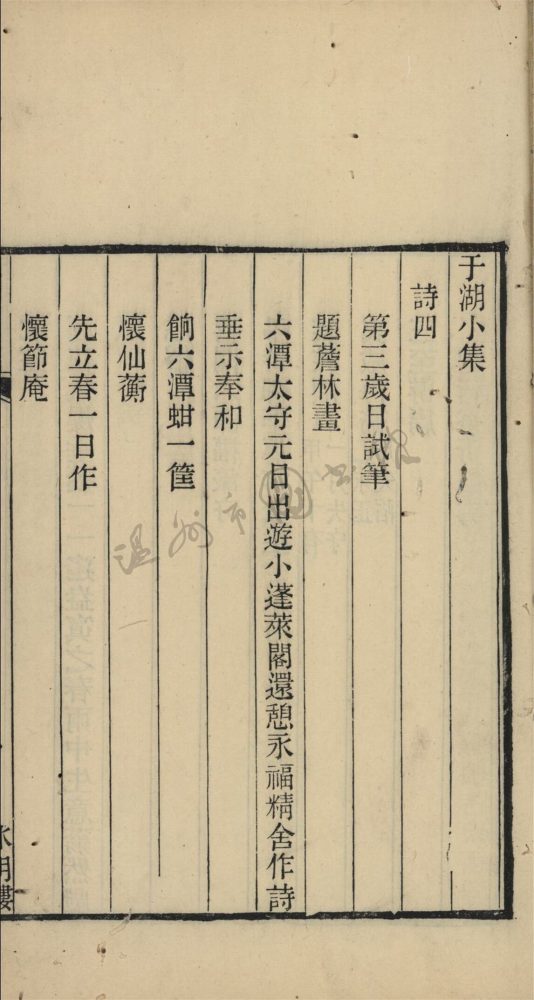 于湖小集
詩四
第三歲日試筆
題薝林畫
六潭太守元日出遊小蓬萊閣還憩永福精舍作詩
垂示奉和
餉六潭蚶一筐
懷仙蘅
先立春一日作
懷節庵
水明樓
温州市图书馆